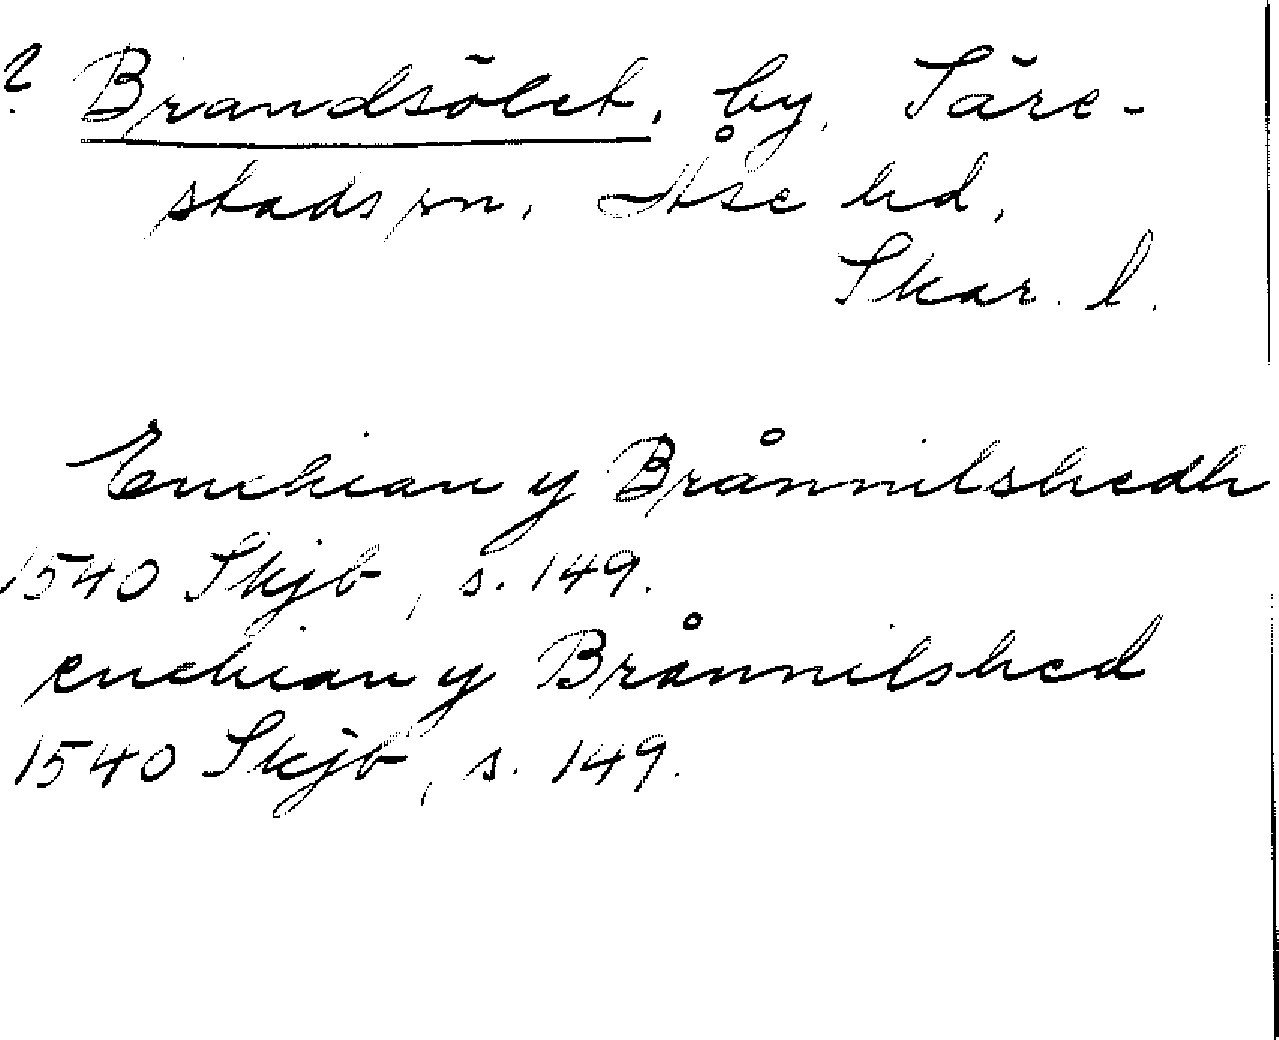 ? Brandsölet, by, Säre-
stads sn. Åse hd,
Skar. l.
Enckian y Brånnilshedh
1540 Skjb, s. 149.
enckian y Brånnilshed
1540 Skjb, s. 149.